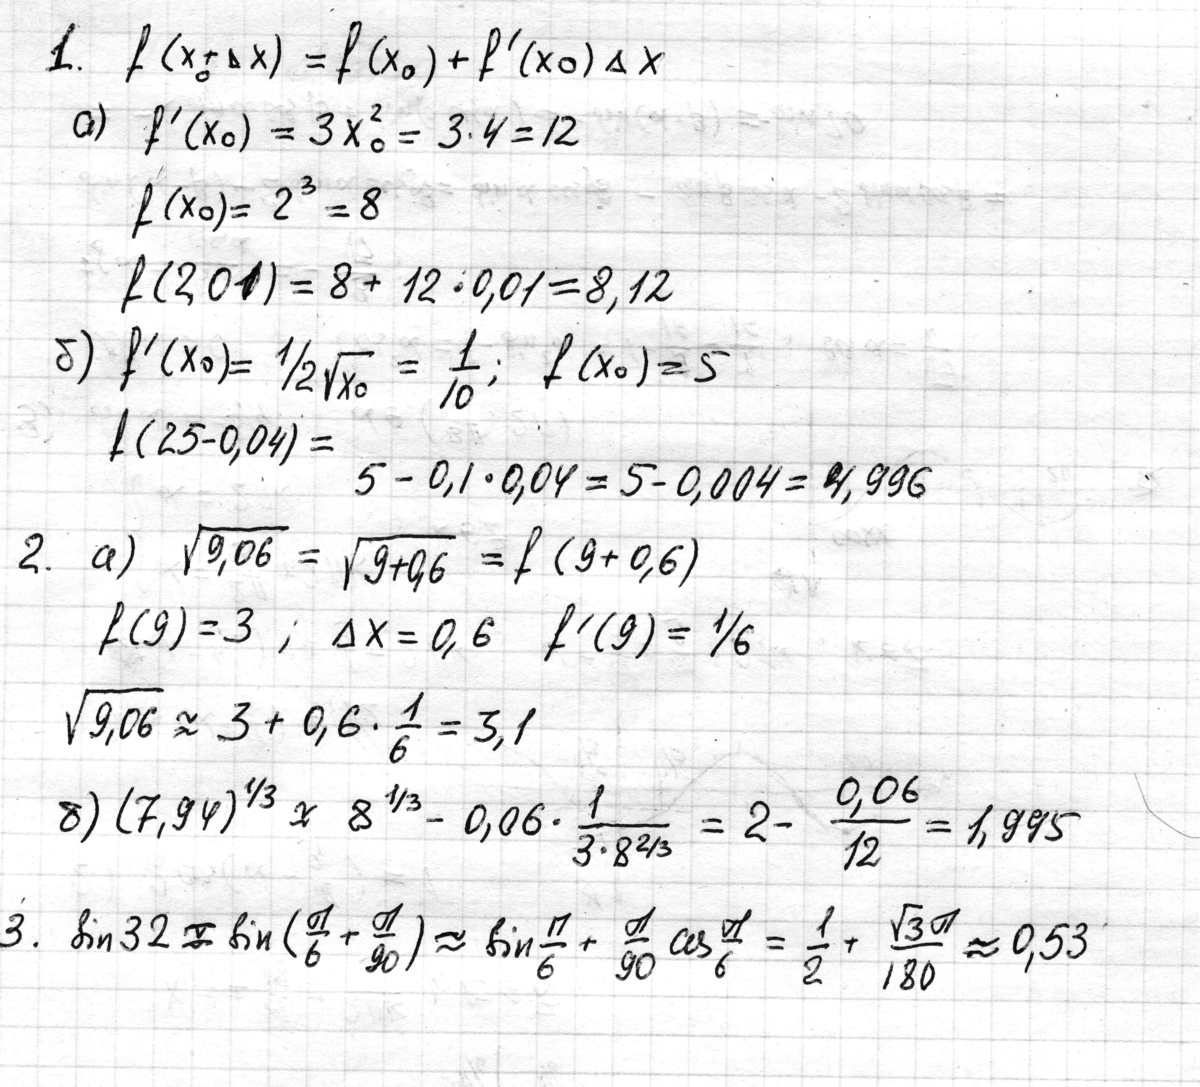 1. f(x₀+Δx) = f(x₀) + f'(x₀) Δx
а) f'(x₀) = 3x₀² = 3·4 = 12
f(x₀) = 2³ = 8
f(2,01) = 8 + 12·0,01 = 8,12
б) f'(x₀) = 1/2√x₀ = 1/10; f(x₀) = 5
f(25-0,04) =
5 - 0,1·0,04 = 5 - 0,004 = 4,996
2. а) √9,06 = √9+0,6 = f(9+0,6)
f(9) = 3; Δx = 0,6 f'(9) = 1/6
√9,06 ≈ 3 + 0,6·1/6 = 3,1
б) (7,94)^1/3 ≈ 8^1/3 - 0,06·1/(3·8^2/3) = 2 - 0,06/12 = 1,995
3. sin32 = sin(π/6 + π/90) ≈ sin π/6 + π/90 cos π/6 = 1/2 + √3π/180 ≈ 0,53